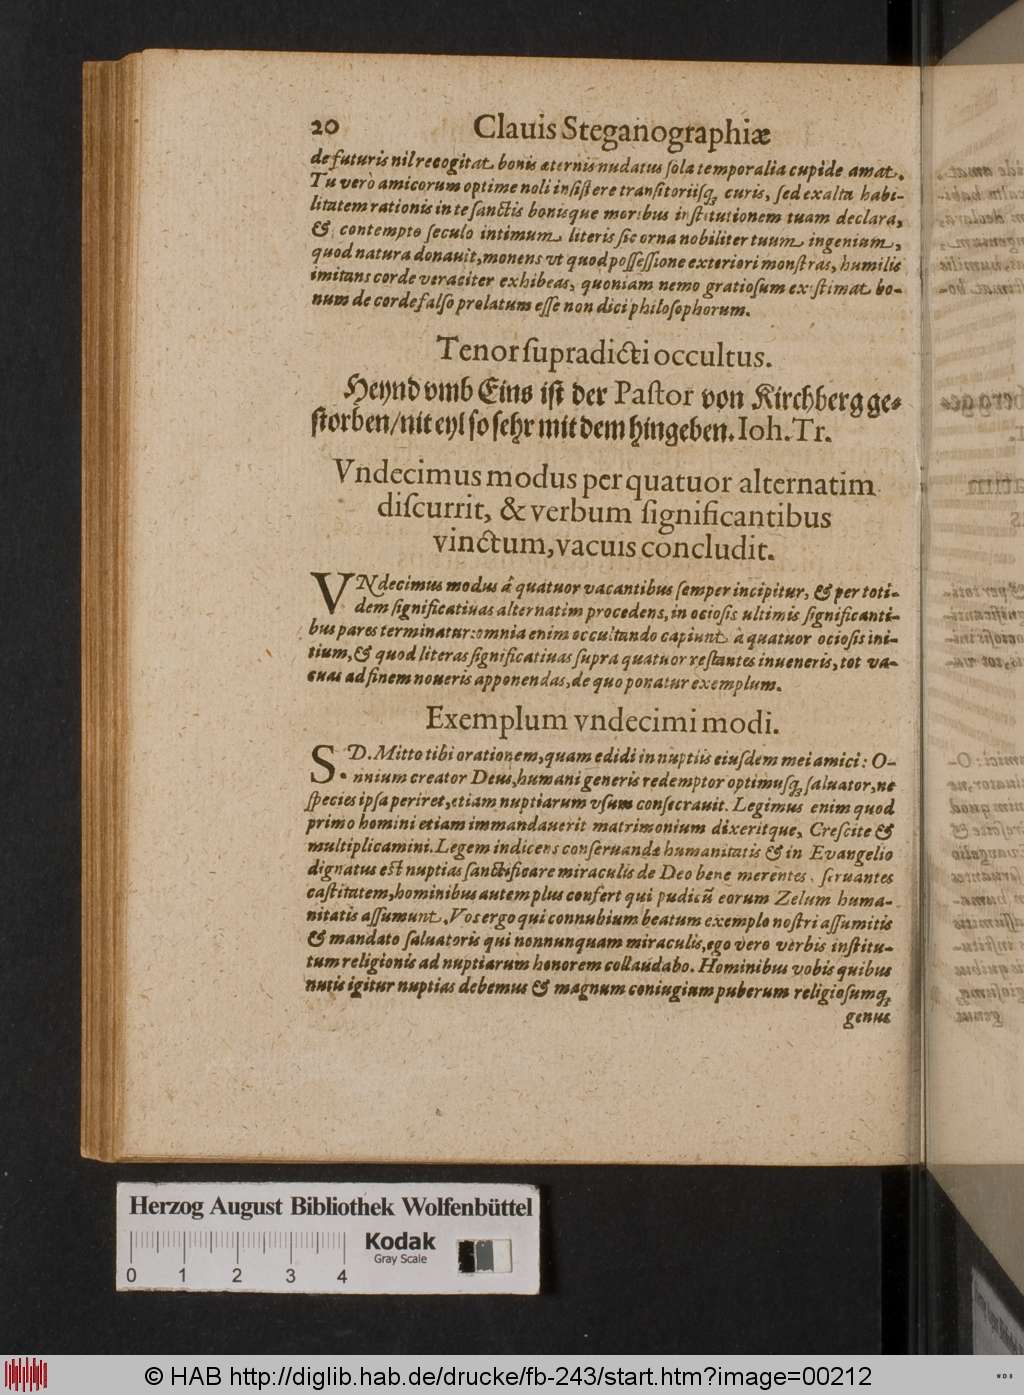 20 Clauis Steganographiæ
de futuris nil recogitat, bonis æternis nudatus sola temporalia cupide amat.
Tu verò amicorum optime noli insistere transitoriisq; curis, sed exalta habi-
litatem rationis in te sanctis bonisque moribus institutionem tuam declara,
& contempto seculo intimum literis sic orna nobiliter tuum ingenium,
quod natura donauit, monens vt quod possessione exteriori monstras, humilis
imitans corde veraciter exhibeas, quoniam nemo gratiosum existimat bo-
num de corde falso prolatum esse non dici philosophorum.
Tenor supradicti occultus.
Heynd vmb Eins ist der Pastor von Kirchberg ge-
storben/nit eyl so sehr mit dem hingeben. Ioh. Tr.
Vndecimus modus per quatuor alternatim
discurrit, & verbum significantibus
vinctum, vacuis concludit.
VNdecimus modus â quatuor vacantibus semper incipitur, & per toti-
dem significatiuas alternatim procedens, in ociosis ultimis significanti-
bus pares terminatur: omnia enim occultando capiunt à quatuor ociosis ini-
tium, & quod literas significatiuas supra quatuor restantes inueneris, tot va-
cuas ad finem noueris apponendas, de quo ponatur exemplum.
Exemplum vndecimi modi.
S. D. Mitto tibi orationem, quam edidi in nuptiis eiusdem mei amici: O-
mnium creator Deus, humani generis redemptor optimusq; saluator, ne
species ipsa periret, etiam nuptiarum vsum consecrauit. Legimus enim quod
primo homini etiam immandauerit matrimonium dixeritque, Crescite &
multiplicamini. Legem indicens conseruandæ humanitatis & in Evangelio
dignatus est nuptias sanctificare miraculis de Deo bene merentes, seruantes
castitatem, hominibus autem plus confert qui pudicũ eorum Zelum huma-
nitatis assumunt. Vos ergo qui connubium beatum exemplo nostri assumitis
& mandato saluatoris qui nonnunquam miraculis, ego vero verbis institu-
tum religionis ad nuptiarum honorem collaudabo. Hominibus vobis quibus
nutis igitur nuptias debemus & magnum coniugium puberum religiosumq;
genus
Herzog August Bibliothek Wolfenbüttel
Kodak
Gray Scale
0 1 2 3 4
© HAB http://diglib.hab.de/drucke/fb-243/start.htm?image=00212